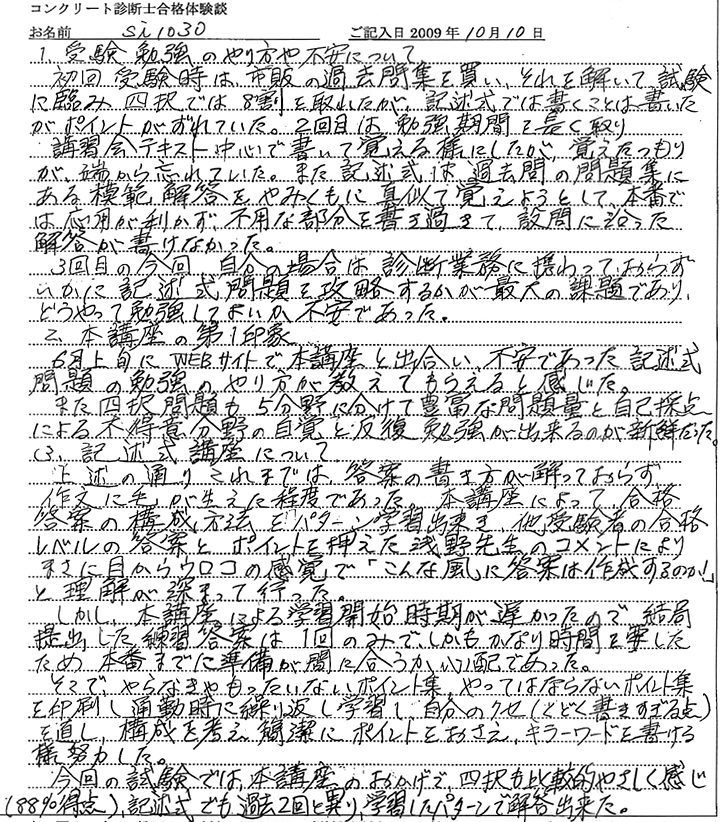 コンクリート診断士合格体験談
お名前 si1030 ご記入日 2009年10月10日
1. 受験勉強のやり方や不安について
初回受験時は、市販の過去問集を買い、それを解いて試験
に臨み四択では8割を取れたが、記述式では書くことは書いた
がポイントがずれていた。2回目は勉強期間を長く取り
講習会テキスト中心で書いて覚える様にしたが、覚えたつもり
が、端から忘れていた。また記述式は過去問の問題集に
ある模範解答をやみくもに真似て覚えようとして、本番で
は応用が利かず、不用な部分を書き過ぎて、設問に沿った
解答が書けなかった。
3回目の今回、自分の場合は診断業務に携わっておらず
いかに記述式問題を攻略するかが最大の課題であり、
どうやって勉強してよいか不安であった。
2. 本講座の第1印象
6月上旬にWEBサイトで本講座と出合い、不安であった記述式
問題の勉強のやり方が教えてもらえると感じた。
また四択問題も5分野に分けて豊富な問題量と自己採点
による不得意分野の自覚と反復勉強が出来るのが新鮮だった。
(3. 記述式講座について
上述の通りこれまでは、答案の書き方が解っておらず
作文に毛が生えた程度であった。本講座によって、合格
答案の構成、方法をパターン学習出来き、他受験者の合格
レベルの答案とポイントを押えた浅野先生のコメントにより
まさに目からウロコの感覚で「こんな風に答案は作成するのか」
と理解が深まって行った。
しかし、本講座による学習開始時期が遅かったので、結局
提出した練習答案は1回のみで、しかもかなり時間を要した
ため本番までに準備が間に合うか心配であった。
そこで、やらなきゃもったいないポイント集、やってはならないポイント集
を印刷し通勤時に繰り返し学習し、自分のクセ(くどく書きすぎる点)
を直し、構成を考え簡潔にポイントをおさえ、キラーワードを書ける
様努力した。
今回の試験では、本講座のおかげで、四択も比較的やさしく感じ
(88%得点)、記述式でも過去2回と異り、学習したパターンで解答出来た。